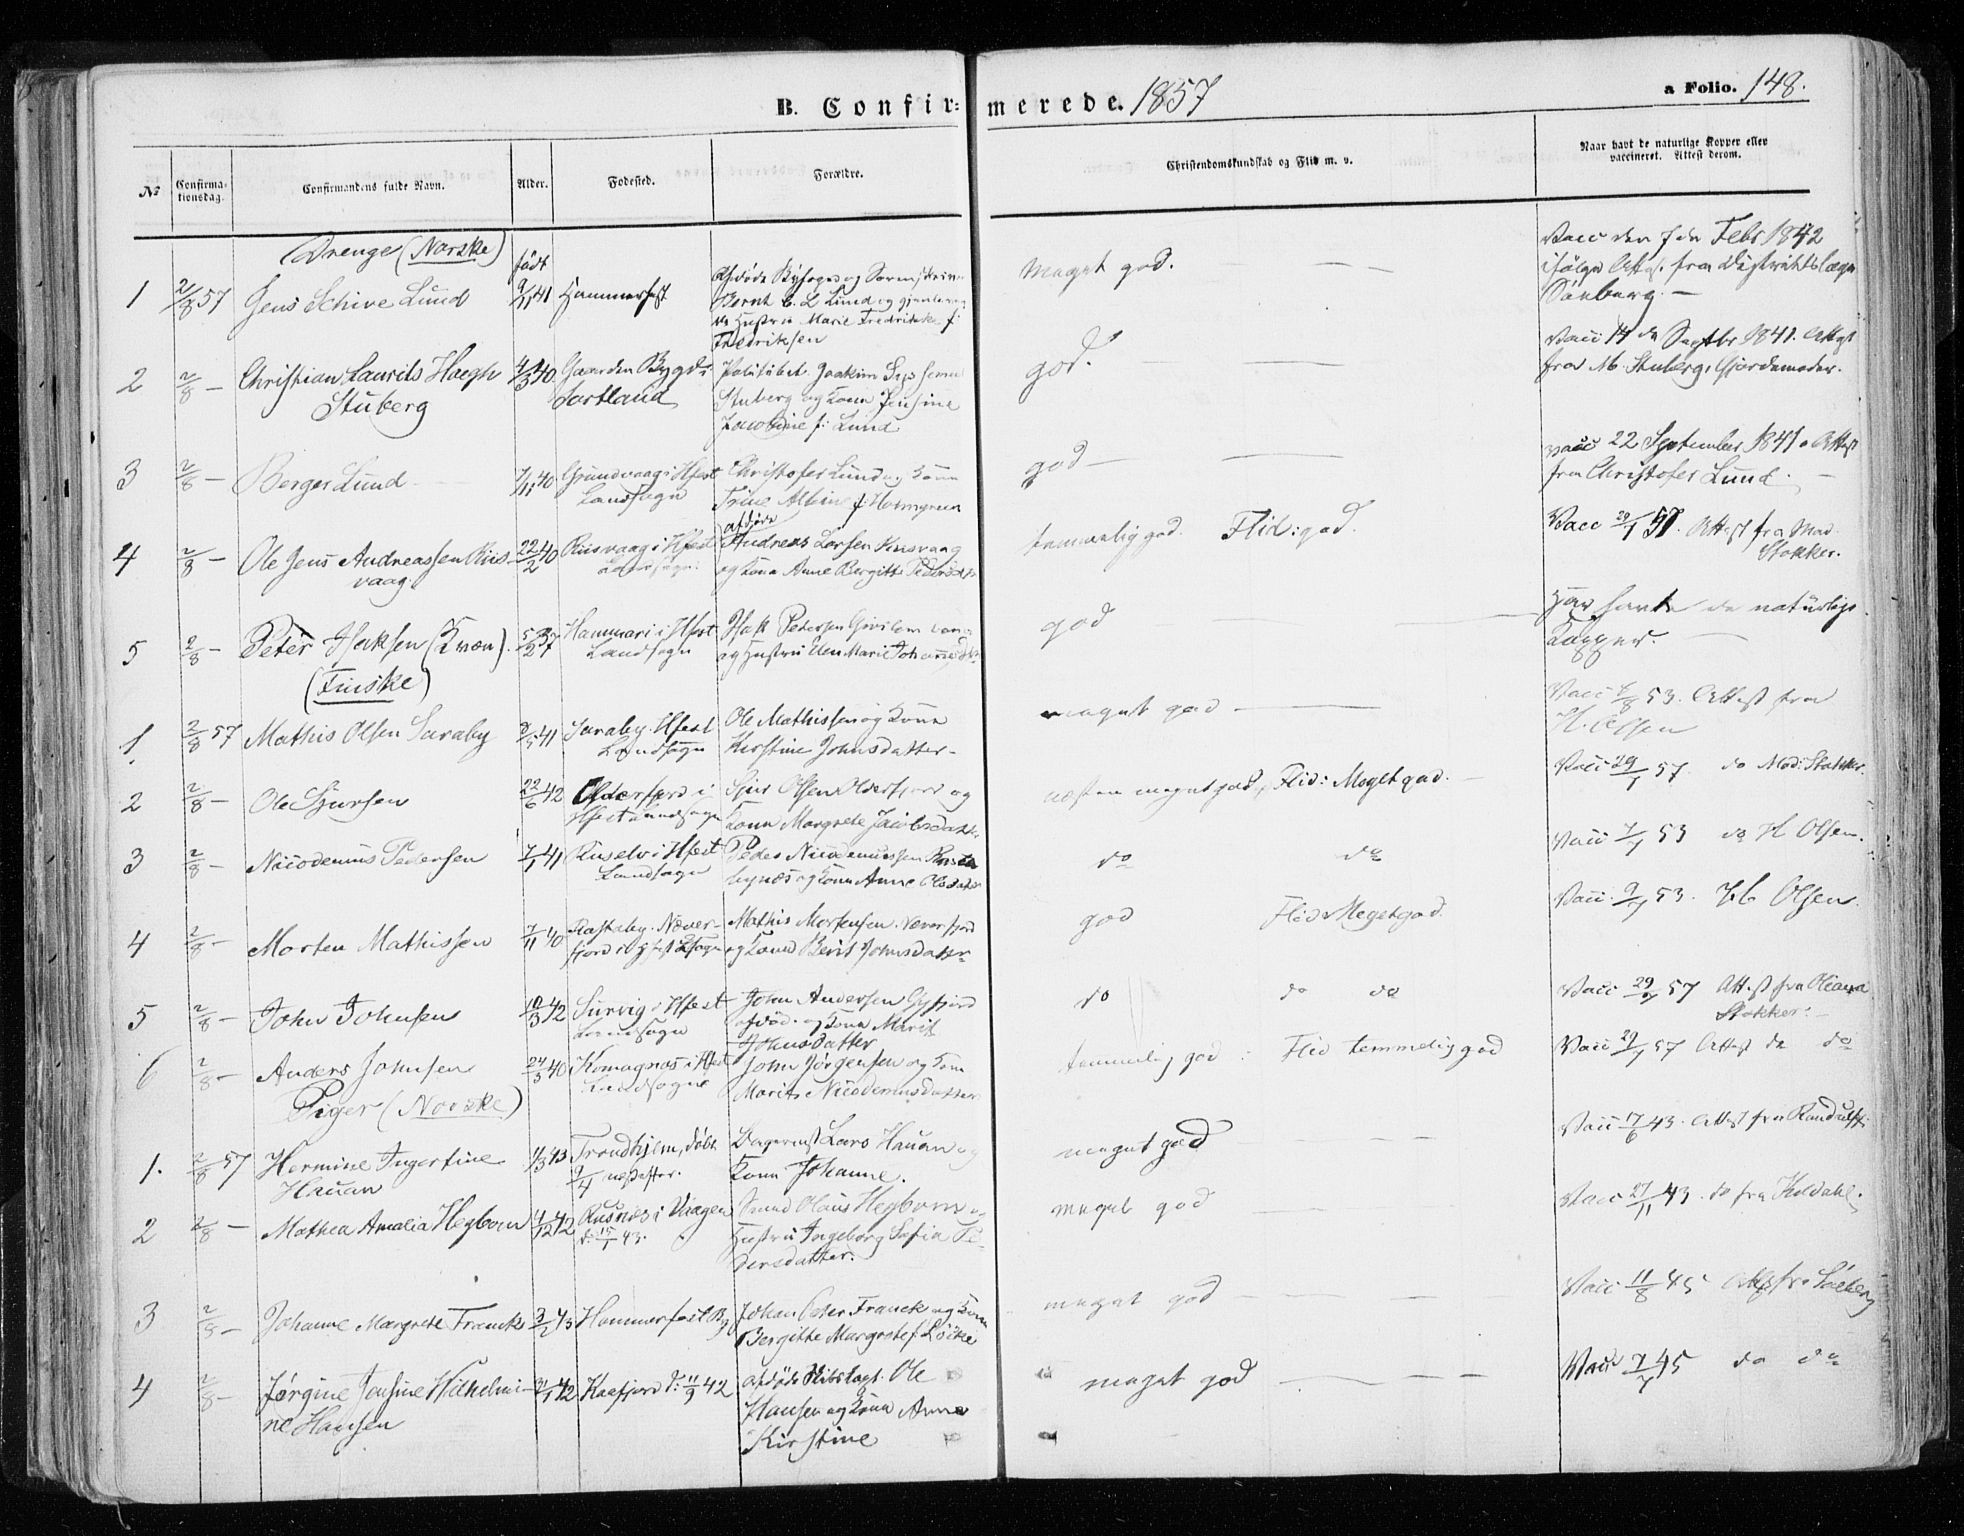 B. Confirmerede. 1857
a Folio. 148.
No
Confirmationsdag.
Confirmandens fulde Navn.
Alder.
Fødested.
Forældre.
Christendomskundskab og Flid m. v.
Naar havt de naturlige Kopper eller vaccineret. Attest derom.
Drenge (Norske)
født
1 2/8 57 Jens Schive Lund 9/11 41 Hammerfest
Afdøde Byfoged og Sorenskriver
Bernt C. L. Lund og gjenlevende
Hustru Marie Fredrikke f.
Fredriksen
Meget god.
Vacc den 7de Febr 1842
ifølge Attest fra Distriktslæge
2 2/8 — Christian Laurits Haegh
Stuberg
4/3 40 Gaarden Bygd i
Sortland
Politibet. Joakim
Stuberg og Kone Jensine
Jacobine f. Lund
god.
Vacc 14de Septbr 1841. Attest
fra M. Stuberg, Gjordemoder.
3 2/8 — Berger Lund 7/11 40 Grundvaag i Hfest
Landsogn
Christofer Lund og Kone
Trine Albine f. Holmgreen
god —
vacc 22 September 1841. Attest
fra Christofer Lund.
4 2/8 — Ole Jens Andreassen Riis-
vaag
22/2 40 Riisvaag i Hfest
Landsogn.
afdøde
Andreas Larsen Riisvaag
og Kone Anne Bergitte Pedersdtr
temmelig god. Flid: god.
Vacc 29/1 57. Attest fra Mad.
Stokker.
5 2/8 — Peter Isaksen (Kvæn). 5/2 37 Hammari i Hfest
Landsogn
Isak Pedersen
og Hustru Elen Marie Johannesdtr
god
Har havt de naturlige
Kopper.
(Finske)
1. 2/8 57 Mathis Olsen Saraby 3/5 41 Saraby Hfest
Landsogn
Ole Mathissen og Kone
Kirstine Johnsdatter
meget god
Vacc 6/8 53. Attest fra
H. Olsen
2 2/8 — Ole Sjursen 22/6 42 Olderfjord i
Hfest Landsogn
Sjur Olsen Olderfjord og
Kone Margrete Jacobsdatter
næsten meget god, Flid: Meget god.
Vacc 29/1 57. do Mad: Stokker
3 2/8 — Nicodemus Pedersen 7/1 41 Russelv i Hfest
Landsogn
Peder Nicodemussen
og Kone Anne Olsdatter
do do
Vacc 7/7 53 do H Olsen.
4 2/8 — Morten Mathissen 7/11 40 Rastaby. Næver-
fjord i Hfest Lsogn
Mathis Mortensen Neverfjord
og Kone Berit Johnsdatter
god Flid Meget god.
Vacc 9/7 53. H. Olsen.
5 2/8 — John Johnsen 10/3 42 Survig i Hfest
Landsogn
John Andersen
afdød. og Kone Marit
Johnsdatter
do do do
Vacc 29/1 57 Attest fra Oleana
Stokker.
6 2/8 — Anders Johnsen 24/3 40 Komagnæs i Hfest
Landsogn
John Jørgensen og Kone
Marith Nicodemusdatter
temmelig god : Flid temmelig god
Vacc 29/1 57 Attest do do
Piger (Norske)
1. 2/8 57 Hermine Ingertine
Hauan
1/3 43 Trondhjem, døbt
9/4 næstefter.
Bagermst Lars Hauan og
Kone Johanne.
meget god
Vacc 7/6 43. Attest fra Randulff.
2 2/8 — Mathea Amalia Heybom 4/12 42 Rusnæs i Vaagen
d: 15/1 43.
Smed Olaus Heybom og
Hustru Ingeborg Sofia Pe-
dersdatter.
meget god
Vacc 27/11 43. do fra Koldahl.
3 2/8 — Johanne Margrete Franck 3/2 43 Hammerfest By
Johan Peter Franck og Kone
Bergitte Margrete f. Lücke
meget god
Vacc 11/8 45 Attest fra Solberg
4 2/8 — Jørgine Jensine Wilhelmi-
ne Hansen
31/1 42 Kaafjord d: 11/9 42
afdøde Skibskapt. Ole
Hansen og Kone Anne
Kirstine
meget god
Vacc 7/7 45 do do